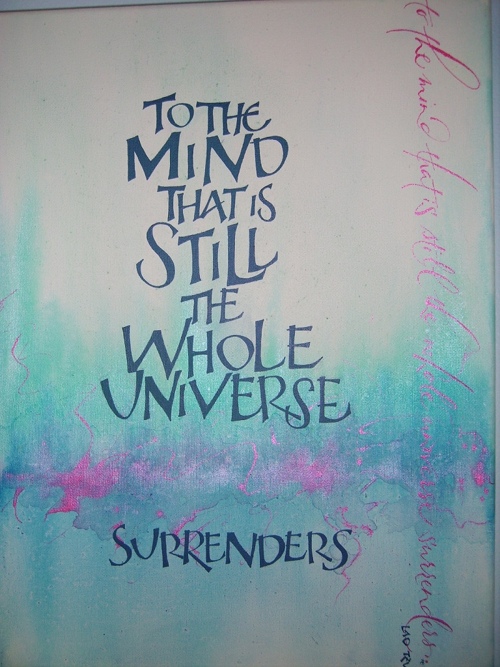 TO THE
MIND
THAT IS
STILL
THE
WHOLE
UNIVERSE
SURRENDERS
to the mind that is still the whole universe surrenders